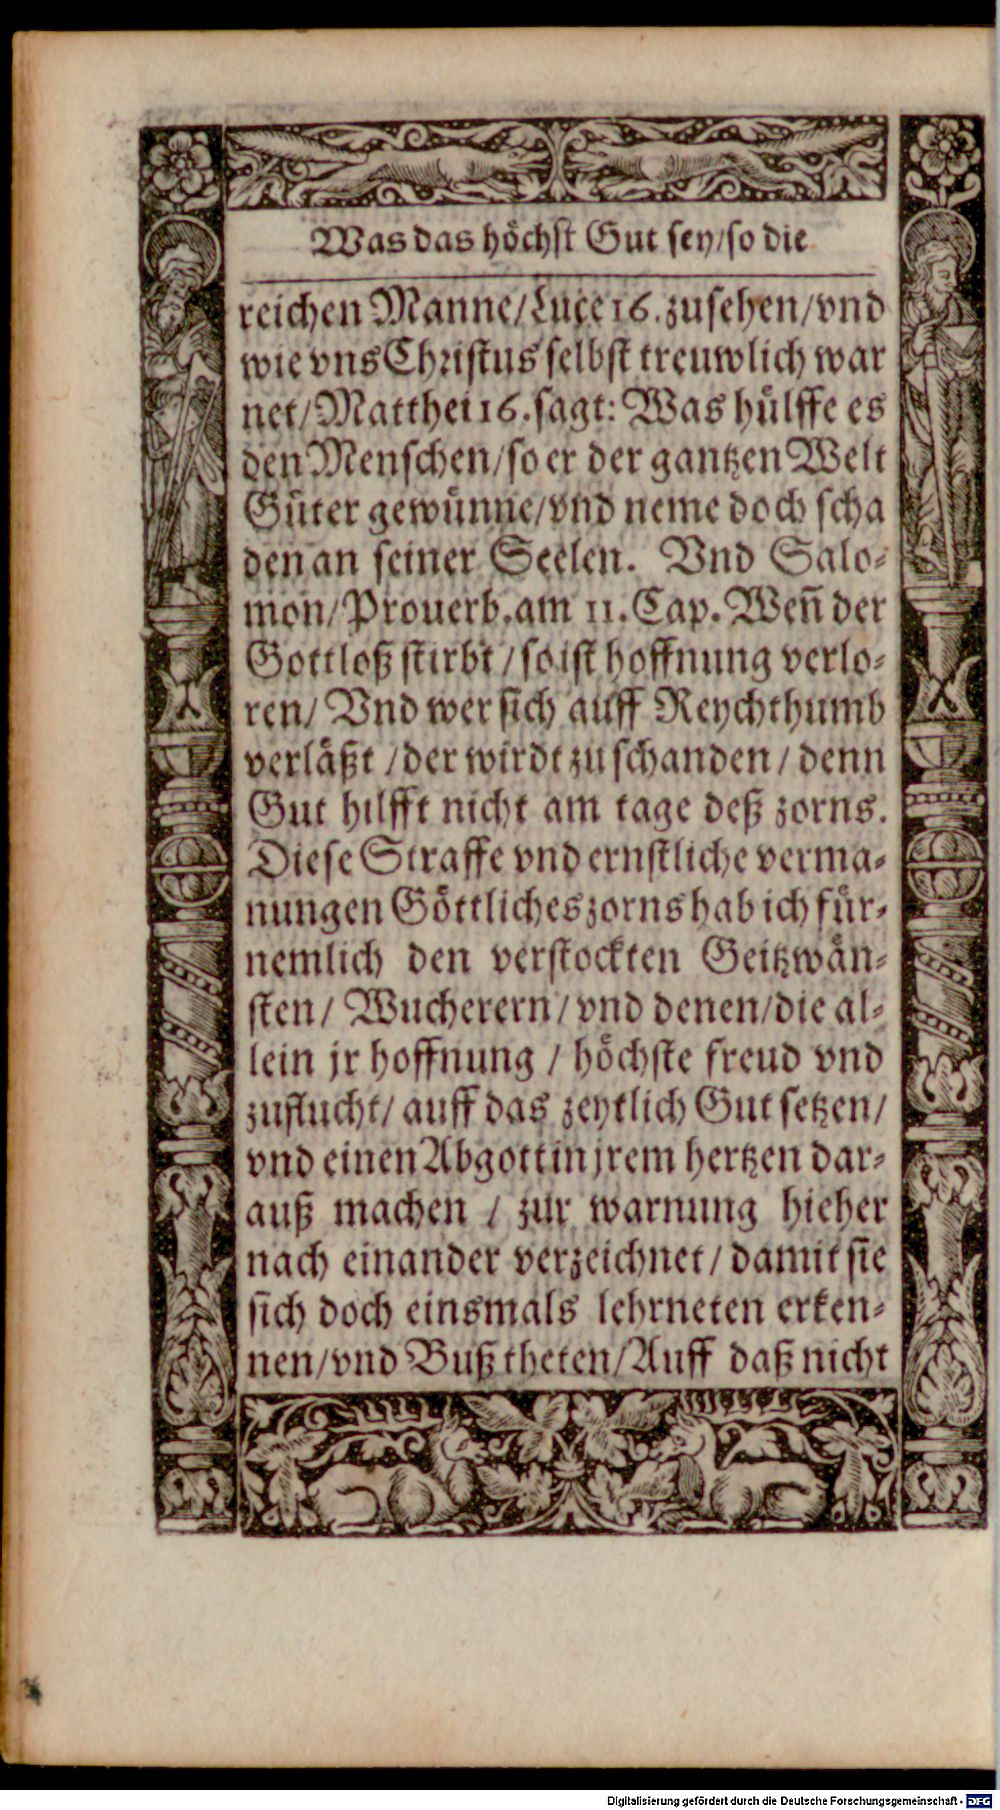 Was das höchst Gut sey/so die
reichen Manne/Luce 16. zusehen/vnd
wie vns Christus selbst treuwlich war
net/Matthei 16. sagt: Was hülffe es
den Menschen/so er der gantzen Welt
Güter gewünne/vnd neme doch scha
den an seiner Seelen. Vnd Salo-
mon/Prouerb. am 11. Cap. Weñ der
Gottloß stirbt/so ist hoffnung verlo-
ren/ Vnd wer sich auff Reychthumb
verläßt /der wirdt zu schanden/ denn
Gut hilfft nicht am tage deß zorns.
Diese Straffe vnd ernstliche verma-
nungen Göttliches zorns hab ich für-
nemlich den verstockten Geitzwän-
sten/ Wucherern/ vnd denen/die al-
lein jr hoffnung / höchste freud vnd
zuflucht/ auff das zeytlich Gut setzen/
vnd einen Abgott in jrem hertzen dar-
auß machen / zur warnung hieher
nach einander verzeichnet/ damit sie
sich doch einsmals lehrneten erken-
nen/vnd Buß theten/Auff daß nicht
Digitalisierung gefördert durch die Deutsche Forschungsgemeinschaft - DFG